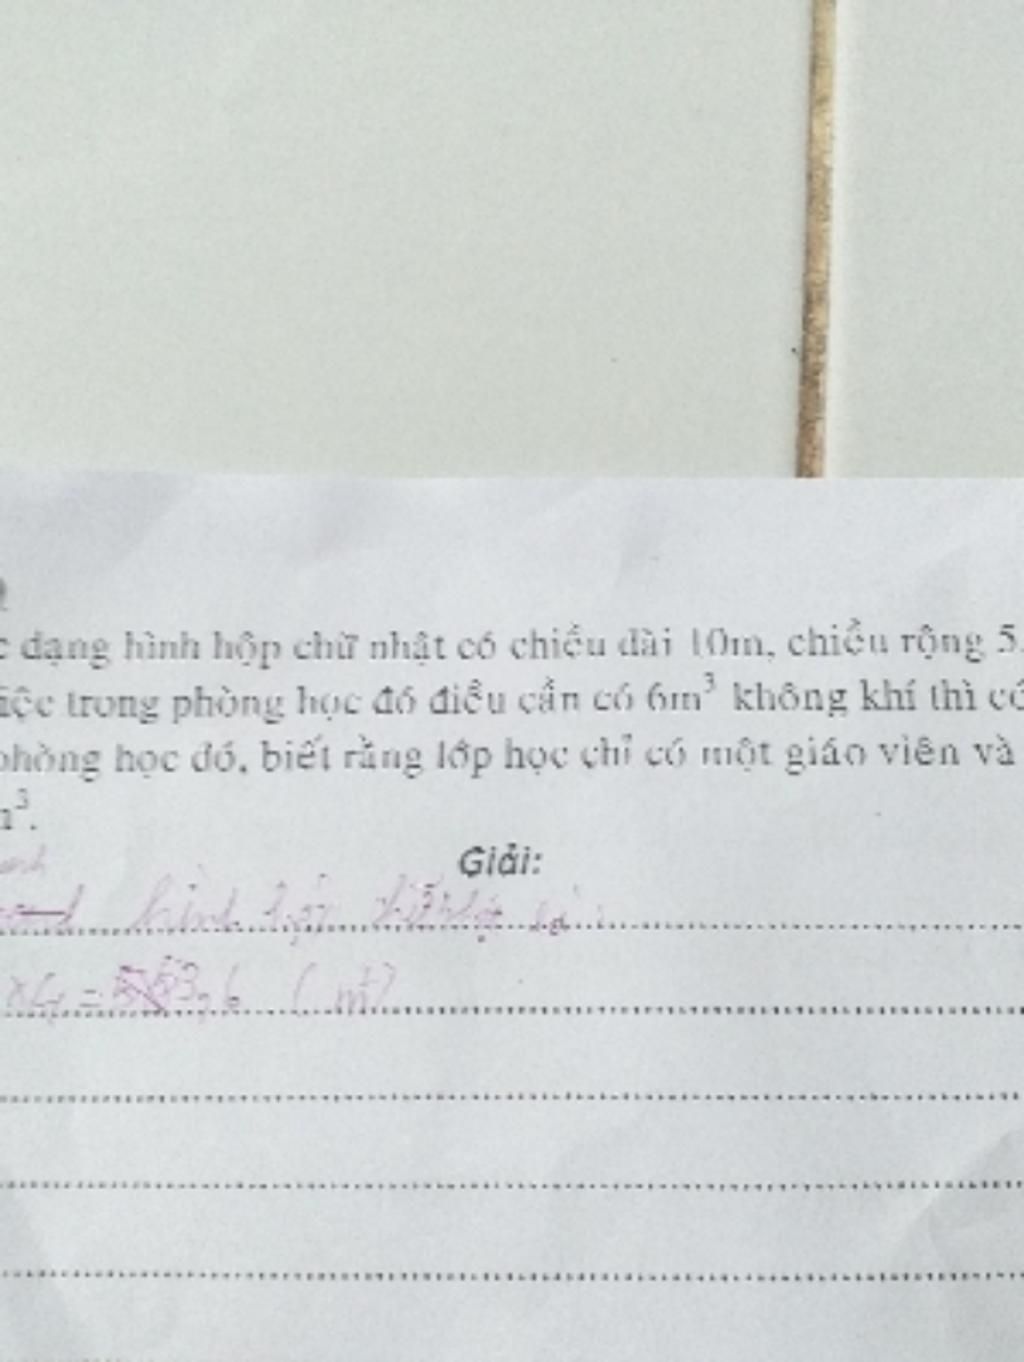 dạng hình hộp chữ nhật có chiều dài 10m, chiều rộng 5
trong phòng học đó điều cần có 6m³ không khí thì có
phòng học đó, biết rằng lớp học chỉ có một giáo viên và
³.
Giải:
hình hộp chữ nhật là :
3,6 (m²)